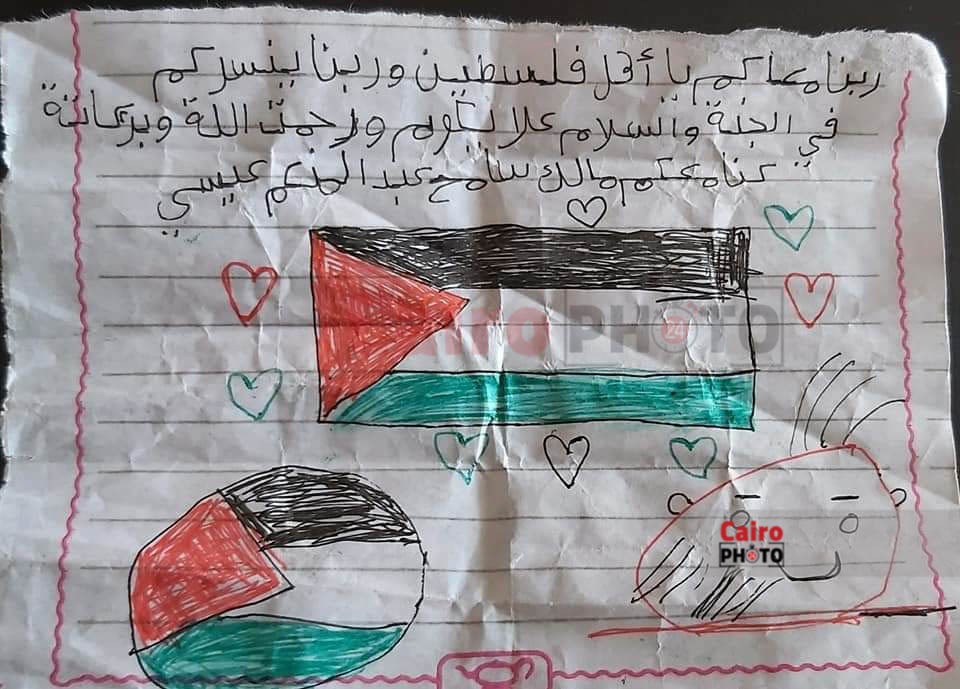 ربنا معاكم يا أهل فلسطين وربنا ينسركم
في الجنة والسلام علا يكوم ورحمت اللة وبركاتة
مالك سامح عبد المنعم عيسي
Cairo PHOTO 24
Cairo
PHOTO